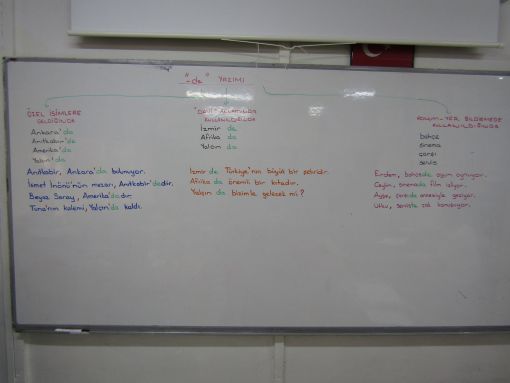 "-de" YAZIMI
ÖZEL İSİMLERE
GELDİĞİNDE
Ankara'da
Anıtkabir'de
Amerika'da
Yalçın'da
Anıtkabir, Ankara'da bulunuyor.
İsmet İnönü'nün mezarı, Anıtkabir'dedir.
Beyaz Saray, Amerika'dadır.
Tuna'nın kalemi, Yalçın'da kaldı.
ANLAMINDA
KULLANILDIĞINDA
İzmir de
Afrika da
Yalçın da
İzmir de Türkiye'nin büyük bir şehridir.
Afrika da önemli bir kıtadır.
Yalçın da bizimle gelecek mi?
YER BİLDİRMEDE
KULLANILDIĞINDA
bahçe
sinema
çarşı
servis
Erdem, bahçede oyun oynuyor.
Ceylin, sinemada film izliyor.
Ayşe, çarşıda annesiyle geziyor.
Utku, serviste çok konuşuyor.